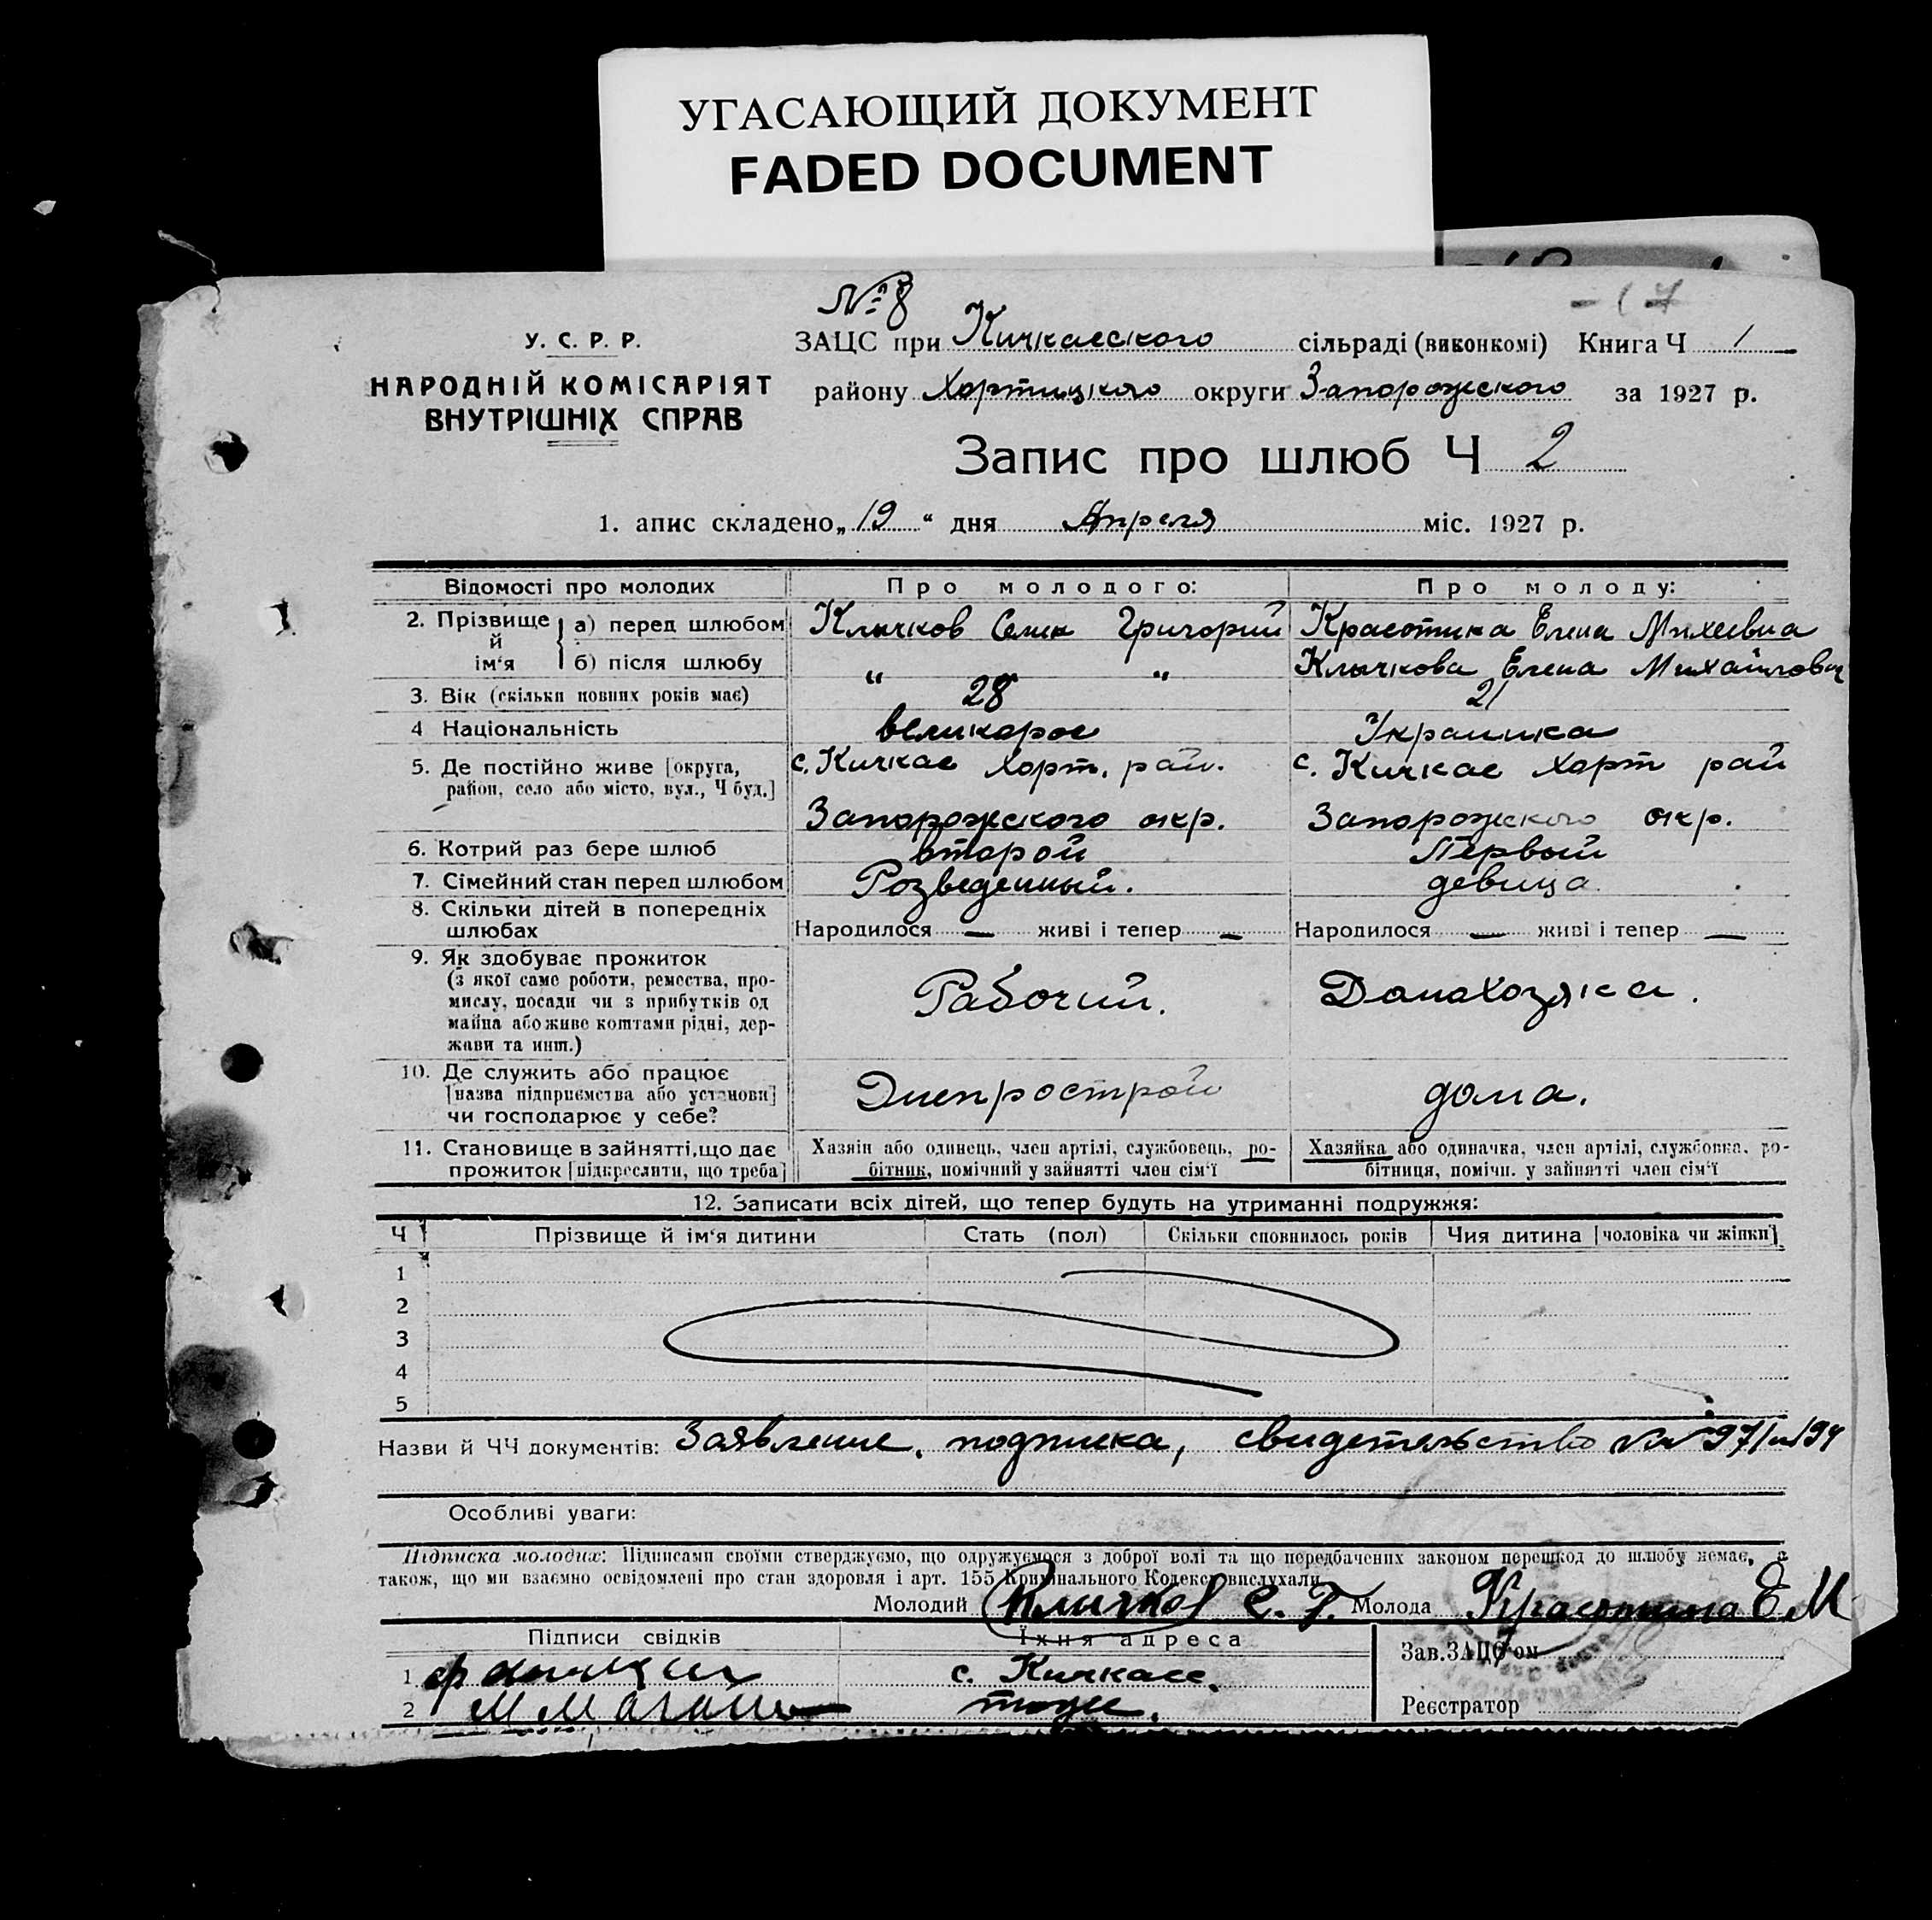 УГАСАЮЩИЙ ДОКУМЕНТ
FADED DOCUMENT
№ 8
У. С. Р. Р.
НАРОДНІЙ КОМІСАРІЯТ
ВНУТРІШНІХ СПРАВ
ЗАЦС при Кичкасского сільраді (виконкомі) Книга Ч 1
району Хортицкого округи Запорожского за 1927 р.
Запис про шлюб Ч 2
1. апис складено „ 19 “ дня Апреля міс. 1927 р.
Відомості про молодих Про молодого: Про молоду:
2. Прізвище й ім'я а) перед шлюбом Клычков Григорий Красотина Елена Михеевна
б) після шлюбу " " Клычкова Елена Михайловн
3. Вік (скільки повних років має) 28 21
4 Національність великорос Украинка
5. Де постійно живе [округа, с. Кичкас Хорт. рай. с. Кичкас Хорт рай
район, село або місто, вул., Ч буд.]
Запорожского окр. Запорожского окр.
6. Котрий раз бере шлюб второй Первый
7. Сімейний стан перед шлюбом Розведенный. девица
8. Скільки дітей в попередніх
шлюбах Народилося — живі і тепер — Народилося — живі і тепер —
9. Як здобуває прожиток
(з якої саме роботи, ремества, про-
мислу, посади чи з прибутків од Рабочий. Домахозяка.
майна або живе коштами рідні, дер-
жави та инш.)
10. Де служить або працює
[назва підприємства або установи] Днепрострой дома.
чи господарює у себе?
11. Становище в зайнятті, що дає Хазяїн або одинець, член артілі, службовець, ро- Хазяйка або одиначка, член артілі, службовка, ро-
прожиток [підкреслити, що треба] бітник, помічний у зайнятті член сім'ї бітниця, помічн. у зайнятті член сім'ї
12. Записати всіх дітей, що тепер будуть на утриманні подружжя:
Ч Прізвище й ім'я дитини Стать (пол) Скільки сповнилось років Чия дитина [чоловіка чи жінки]
1
2
3
4
5
Назви й ЧЧ документів: Заявление, подписка, свидетельство
Особливі уваги:
Підписка молодих: Підписами своїми стверджуємо, що одружуємося з доброї волі та що передбачених законом перешкод до шлюбу немає, а
також, що ми взаємно освідомлені про стан здоровля і арт. 155 Кримінального Кодексу вислухали
Молодий Клычков С. Г. Молода Красотина Е М
Підписи свідків Їхня адреса Зав. ЗАЦС'ом
1 с. Кичкасс.
2 тоже. Реєстратор